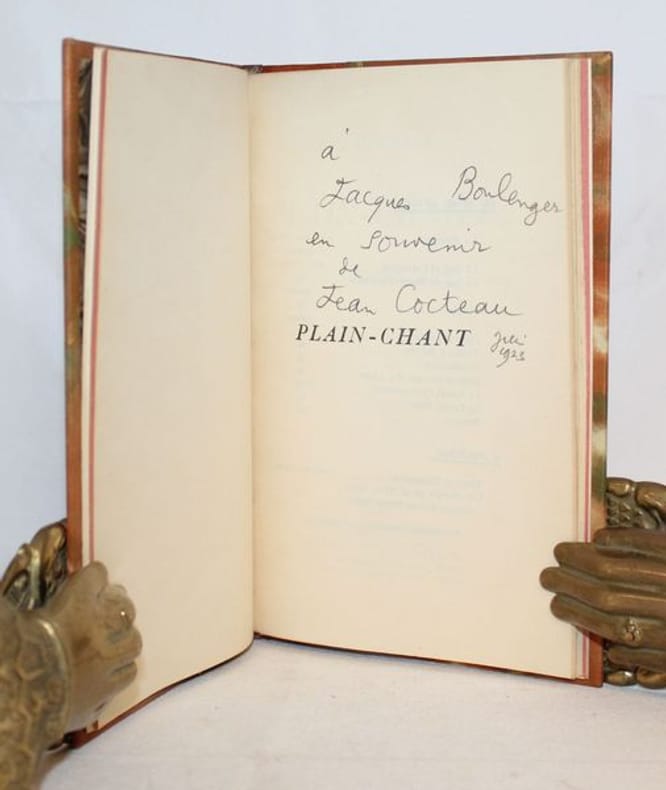 à
Jacques Boulenger
en souvenir
de
Jean Cocteau
PLAIN-CHANT
1923